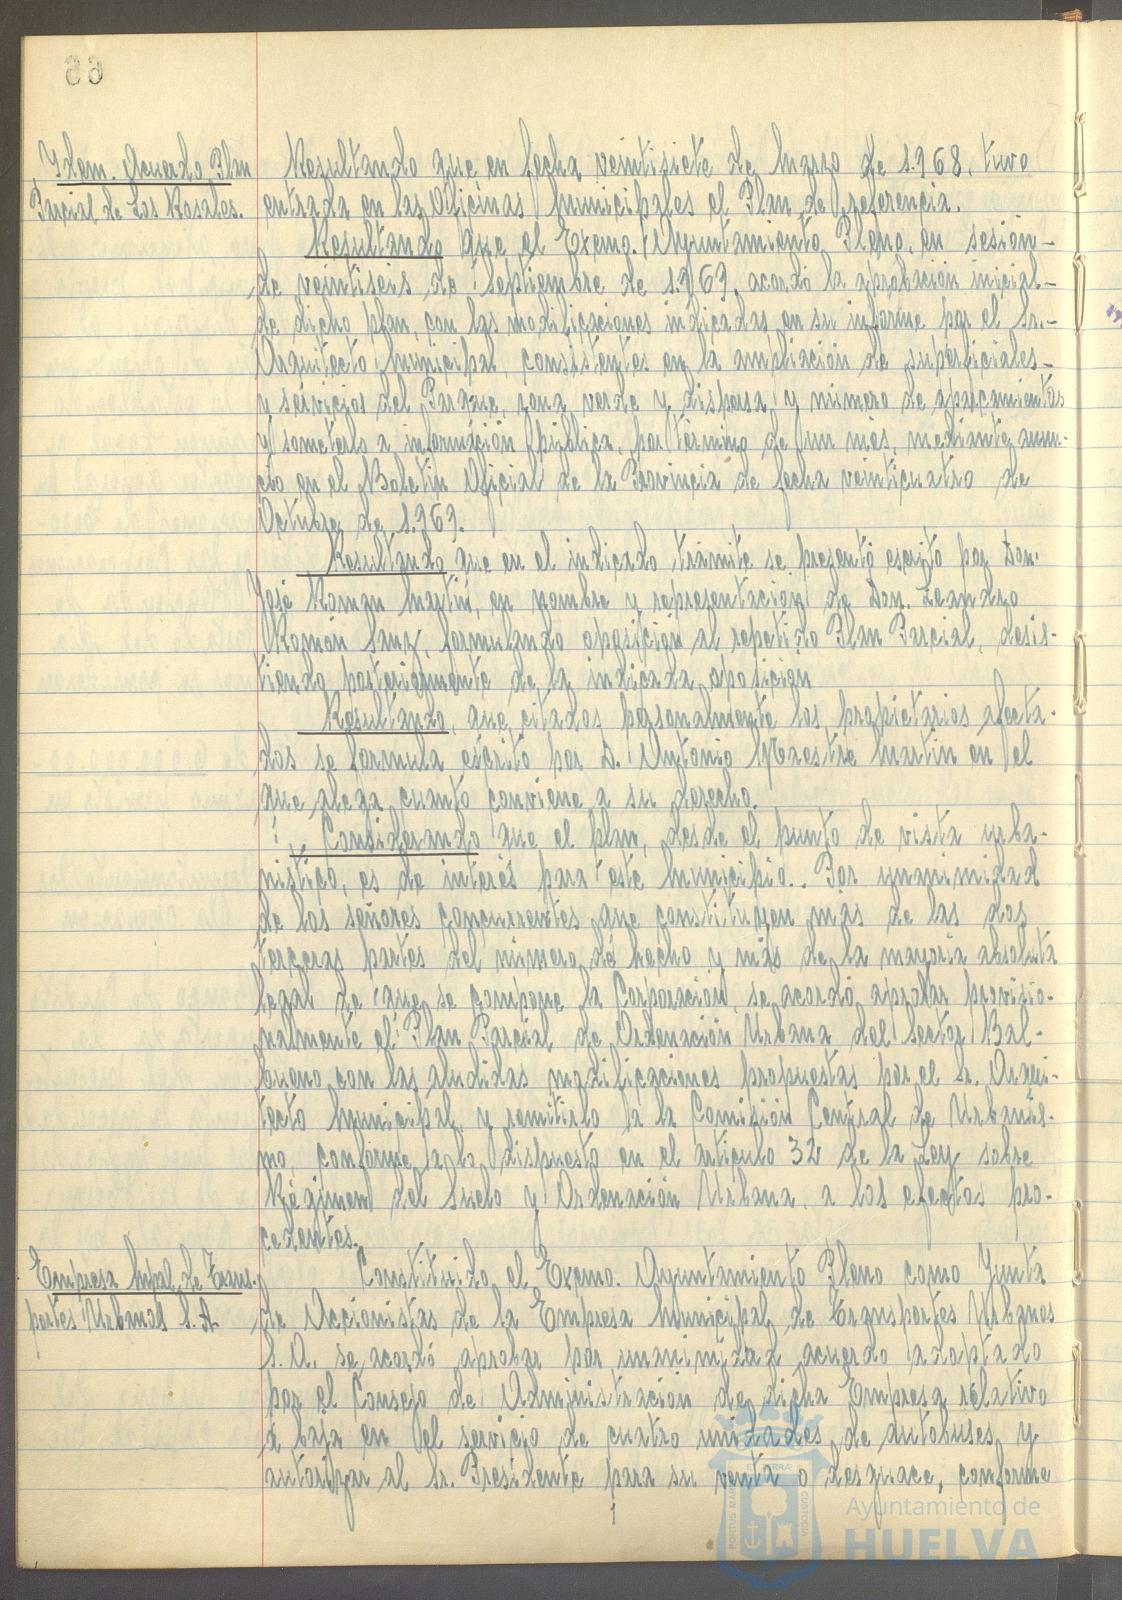 66
Idem. Acuerdo Plan
Parcial de Los Rosales.
Resultando que en fecha veintisiete de Marzo de 1.968, tuvo
entrada en las Oficinas Municipales el Plan de referencia.
Resultando que el Excmo. Ayuntamiento Pleno, en sesión-
de veintiseis de Septiembre de 1.969, acordó la aprobación inicial-
de dicho plan, con las modificaciones indicadas en su informe por el Sr.-
Arquitecto Municipal, consistentes en la ampliación de superficiales-
y servicios del Parque, zona verde y dispersa y número de aparcamientos
y someterlo a información pública, por término de un mes, mediante anun-
cio en el Boletín Oficial de la Provincia de fecha veinticuatro de
Octubre de 1.969.
Resultando que en el indicado trámite se presentó escrito por Don.
José Roman Martín, en nombre y representación de Don. Leandro
Román Sanz, formulando oposición al repetido Plan Parcial, desis-
tiendo posteriormente de la indicada oposición
Resultando, que citados personalmente los propietarios afecta-
dos se formula escrito por D. Antonio Maestre Martín en el
que alega cuanto conviene a su derecho.
Considerando que el plan, desde el punto de vista urba-
nístico, es de interés para este Municipio.. Por unanimidad
de los señores concurrentes que constituyen más de las dos
terceras partes del número de hecho y más de la mayoría absoluta
legal de que se compone la Corporación, se acordó aprobar provisio-
nalmente el Plan Parcial de Ordenación Urbana del Sector Bal-
bueno con las aludidas modificaciones propuestas por el Sr. Arqui-
tecto Municipal, y remitirlo a la Comisión Central de Urbanis-
mo, conforme a lo dispuesto en el artículo 32 de la Ley sobre
Régimen del Suelo y Ordenación Urbana, a los efectos pro-
cedentes.
Empresa Mpal. de Trans-
portes Urbanos S.A
Constituido el Excmo. Ayuntamiento Pleno como Junta
de Accionistas de la Empresa Municipal de Transportes Urbanos
S.A. se acordó aprobar por unanimidad acuerdo adoptado
por el Consejo de Administración de dicha Empresa relativo
a baja en el servicio de cuatro unidades de autobuses y
autorizar al Sr. Presidente para su venta o desguace, conforme
Ayuntamiento de
HUELVA